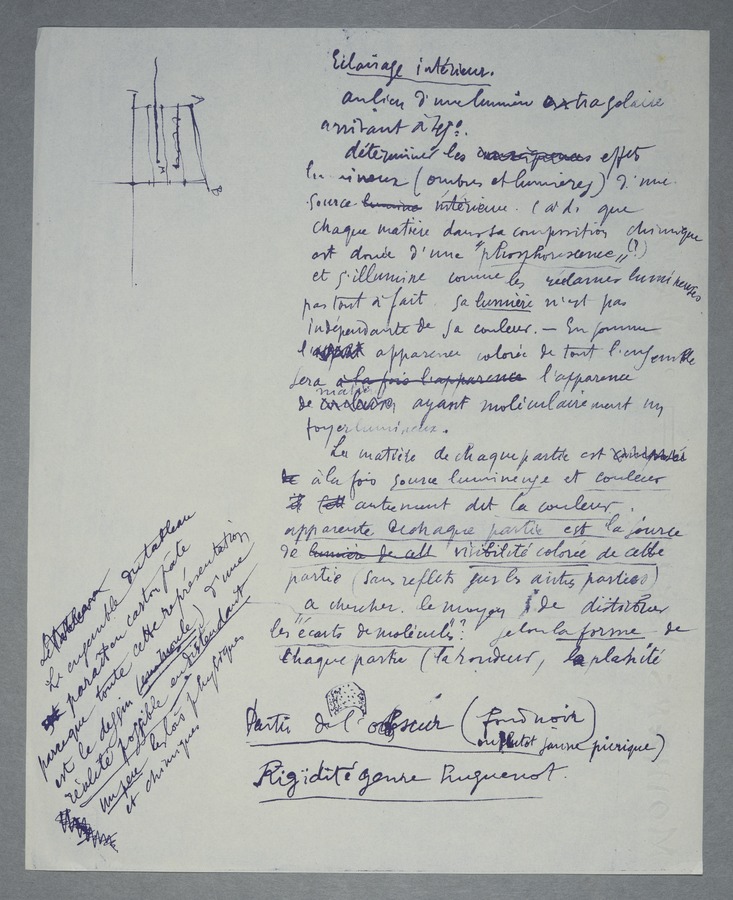 Eclairage intérieur.
au lieu d'une lumière extra solaire
arrivant à
déterminer les effets
lumineux (ombres et lumières) d'une
source lumière intérieure. (à d. que
chaque matière dans sa composition chimique
est douée d'une "phosphorescence" (?)
et s'illumine comme les réclames lumineuses
pas tout à fait. sa lumière n'est pas
indépendante de sa couleur. — En somme
apparence colorée de tout l'ensemble
sera à la fois l'apparence l'apparence
matière
de ayant moléculairement un
foyer lumineux.
La matière de chaque partie est
à la fois source lumineuse et couleur
autrement dit la couleur
apparente de chaque partie est la source
de lumière de cette visibilité colorée de cette
partie (sans reflets sur les autres parties)
a chercher. le moyen de distribuer
les "écarts de molécules"? selon la forme de
chaque partie (la rondeur, la platité
Partir de l'obscur (fond noir)
ou plutot jaune picrique)
Rigidité genre Huguenot.
Le tableau
Le ensemble du tableau
paraît en carton pate
parceque toute cette représentation
est le dessin (un moule) d'une
réalité possible en distendant
un peu les lois physiques
et chimiques